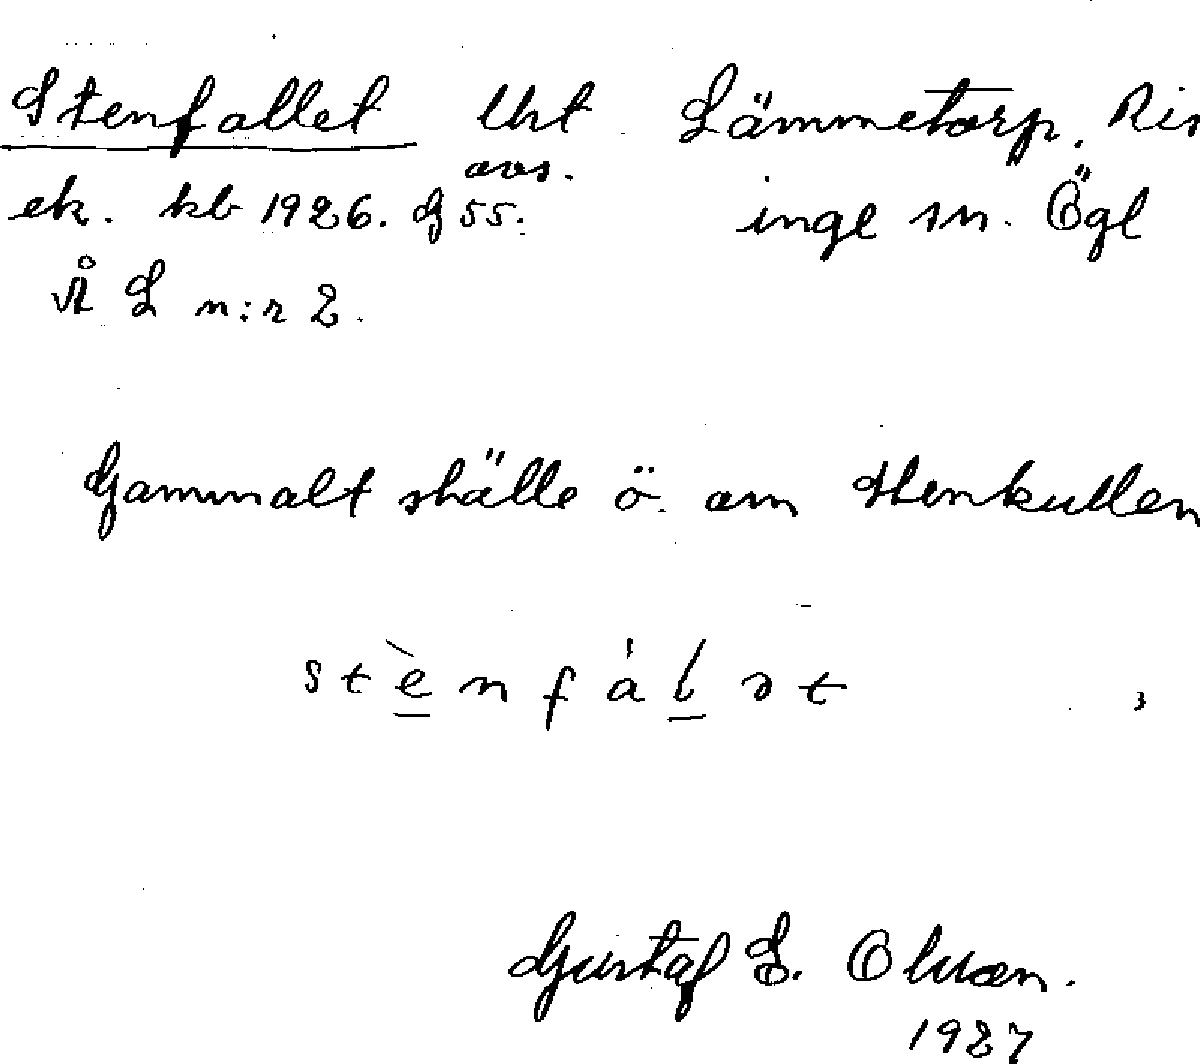 Stenfallet lht Lämmetorp. Ris
avs.
ek. kb 1926. G 55. inge sn. Ögl
Å L n:r 2.
Gammalt ställe ö. om Stenkullen
stè̲nfál̲ət
Gustaf E. Olsson.
1927